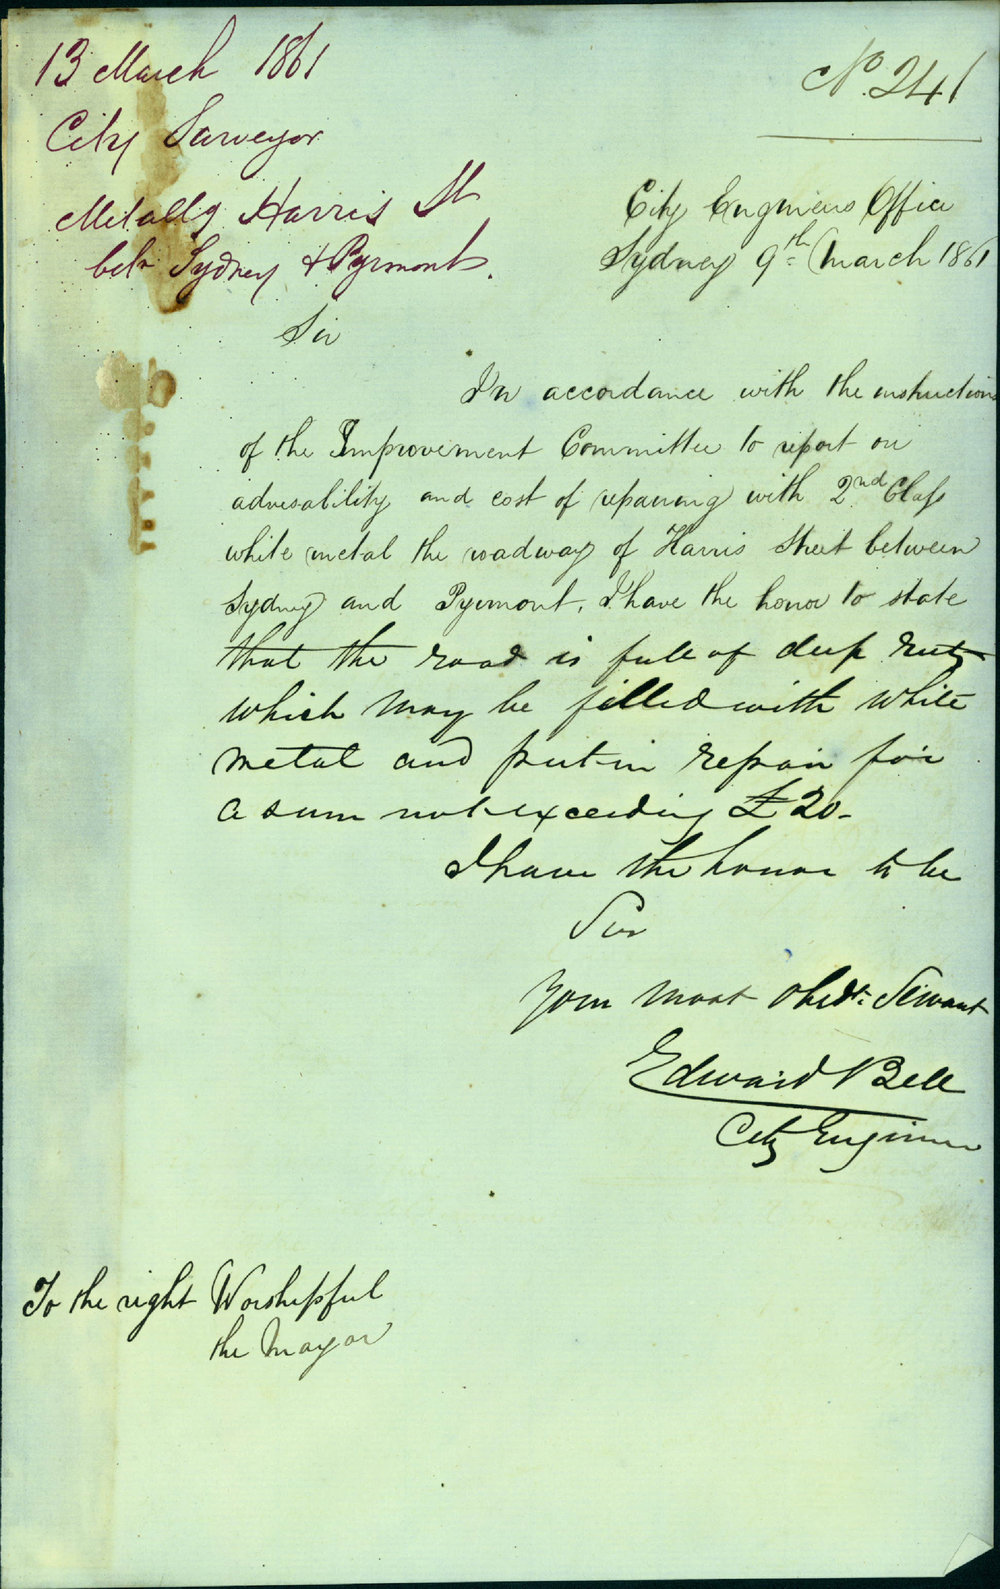 13 March 1861
City Surveyor
Metallg Harris St
betn Sydney & Pyrmont.
No. 241
City Engineers Office
Sydney 9th March 1861
Sir
In accordance with the instructions
of the Improvement Committee to report on
advisability and cost of repairing with 2nd Class
white metal the roadway of Harris Street between
Sydney and Pyrmont, I have the honor to state
that the road is full of deep ruts
which may be filled with white
metal and put in repair for
a sum not exceeding £20-
I have the honor to be
Sir
Your most Obedt. Servant
Edward Bell
City Engineer
To the right Worshipful
the Mayor